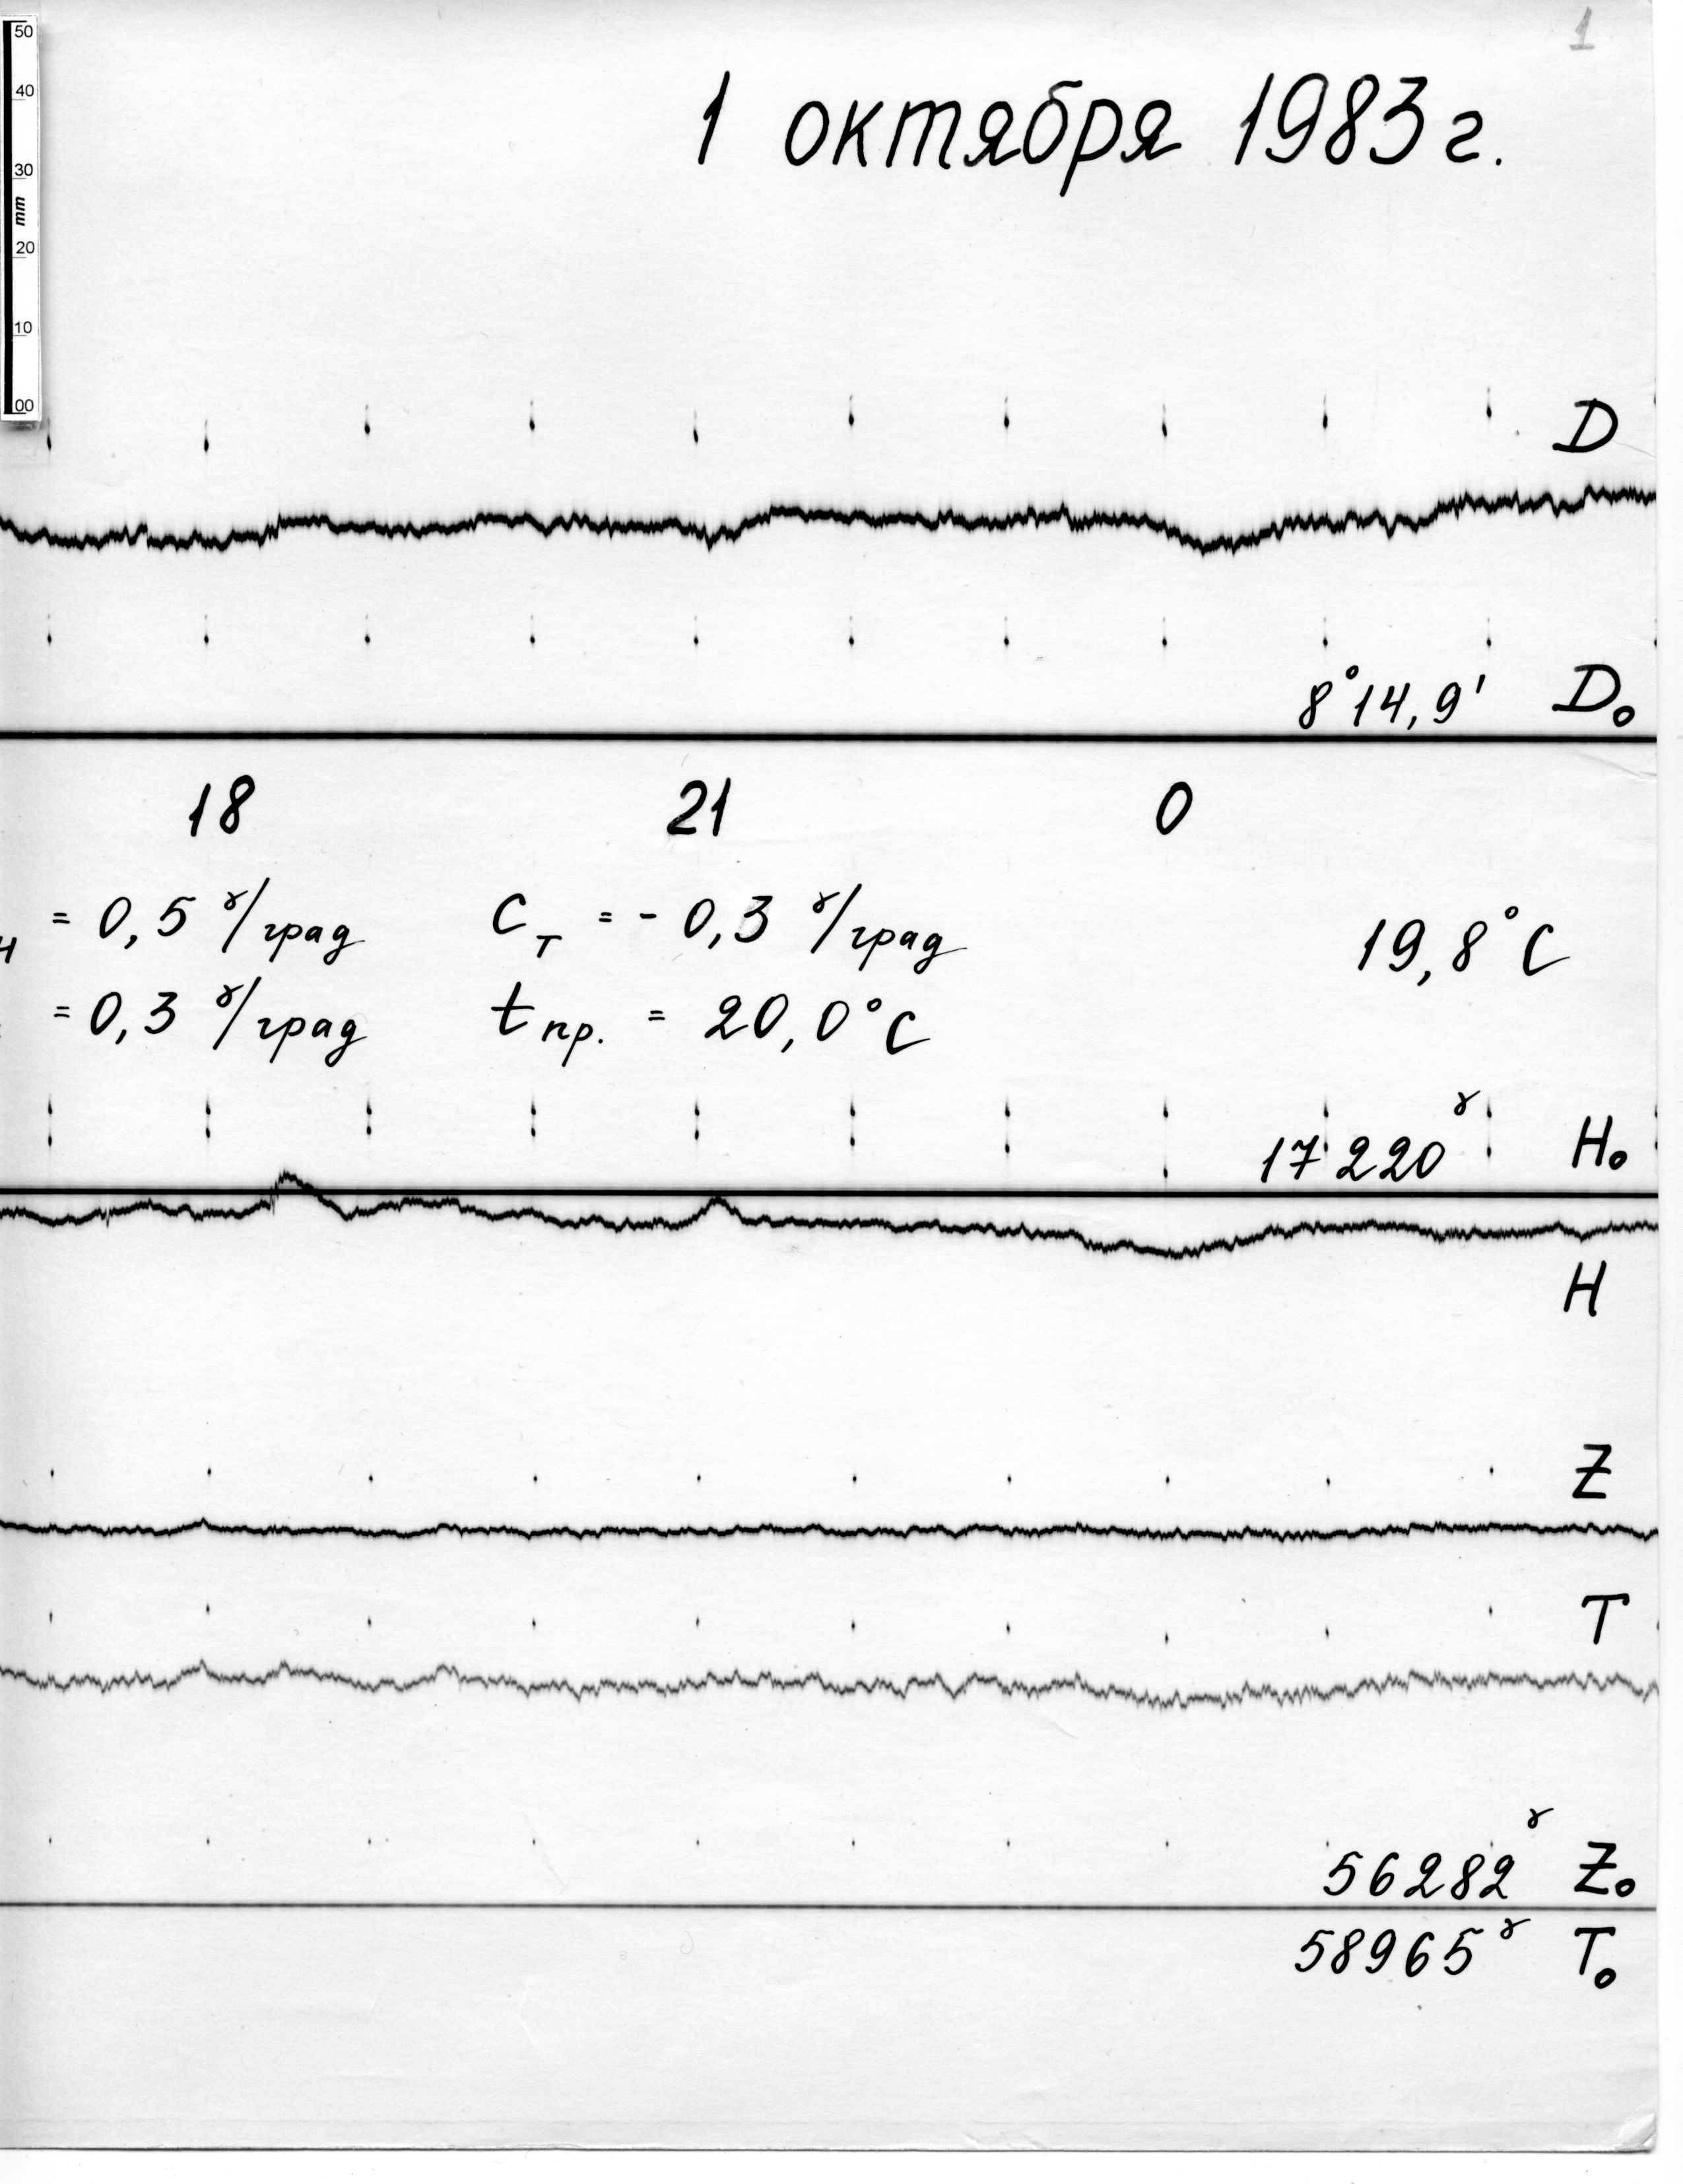 1
50
40
30
mm
20
10
00
1 октября 1983 г.
D
8°14,9' D₀
18 21 0
н = 0,5 γ/град C_T = - 0,3 γ/град 19,8°C
= 0,3 γ/град t пр. = 20,0°C
17220 γ H₀
H
Z
T
56282 γ Z₀
58965 γ T₀